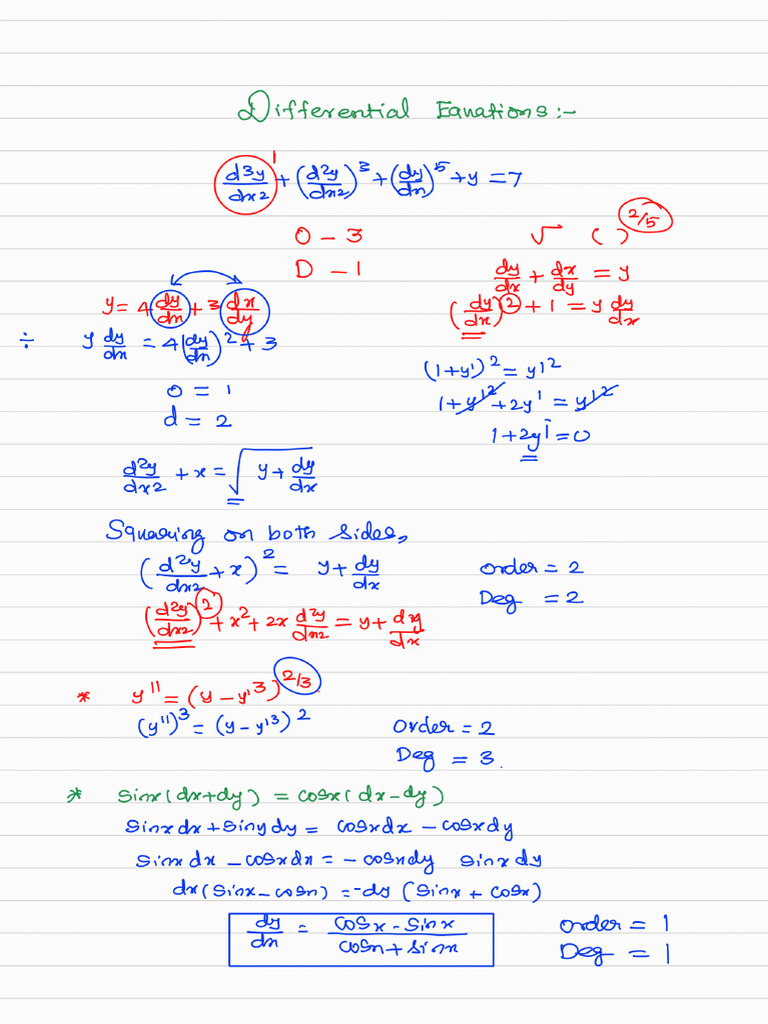 Differential Equations:-
d3y/dx2 1 + (d2y/dx2)3 + (dy/dx)5 + y = 7
O - 3
D - 1
√ ( )2/5
dy/dx + dx/dy = y
(dy/dx)2 + 1 = y dy/dx
y = 4 dy/dx + 3 dx/dy
÷ y dy/dx = 4(dy/dx)2 + 3
O = 1
d = 2
(1+y')2 = y'2
1 + y'2 + 2y' = y'2
1 + 2y' = 0
d2y/dx2 + x = √(y + dy/dx)
Squaring on both sides,
(d2y/dx2 + x)2 = y + dy/dx
(d2y/dx2)2 + x2 + 2x d2y/dx2 = y + dy/dx
order = 2
Deg = 2
* y'' = (y - y'3)2/3
(y'')3 = (y - y'3)2
Order = 2
Deg = 3.
* sinx(dx+dy) = cosx(dx-dy)
sinx dx + siny dy = cosx dx - cosx dy
sinx dx - cosx dx = - cosx dy sinx dy
dx(sinx - cosx) = -dy (sinx + cosx)
dy/dx = cosx - sinx / cosx + sinx
Order = 1
Deg = 1